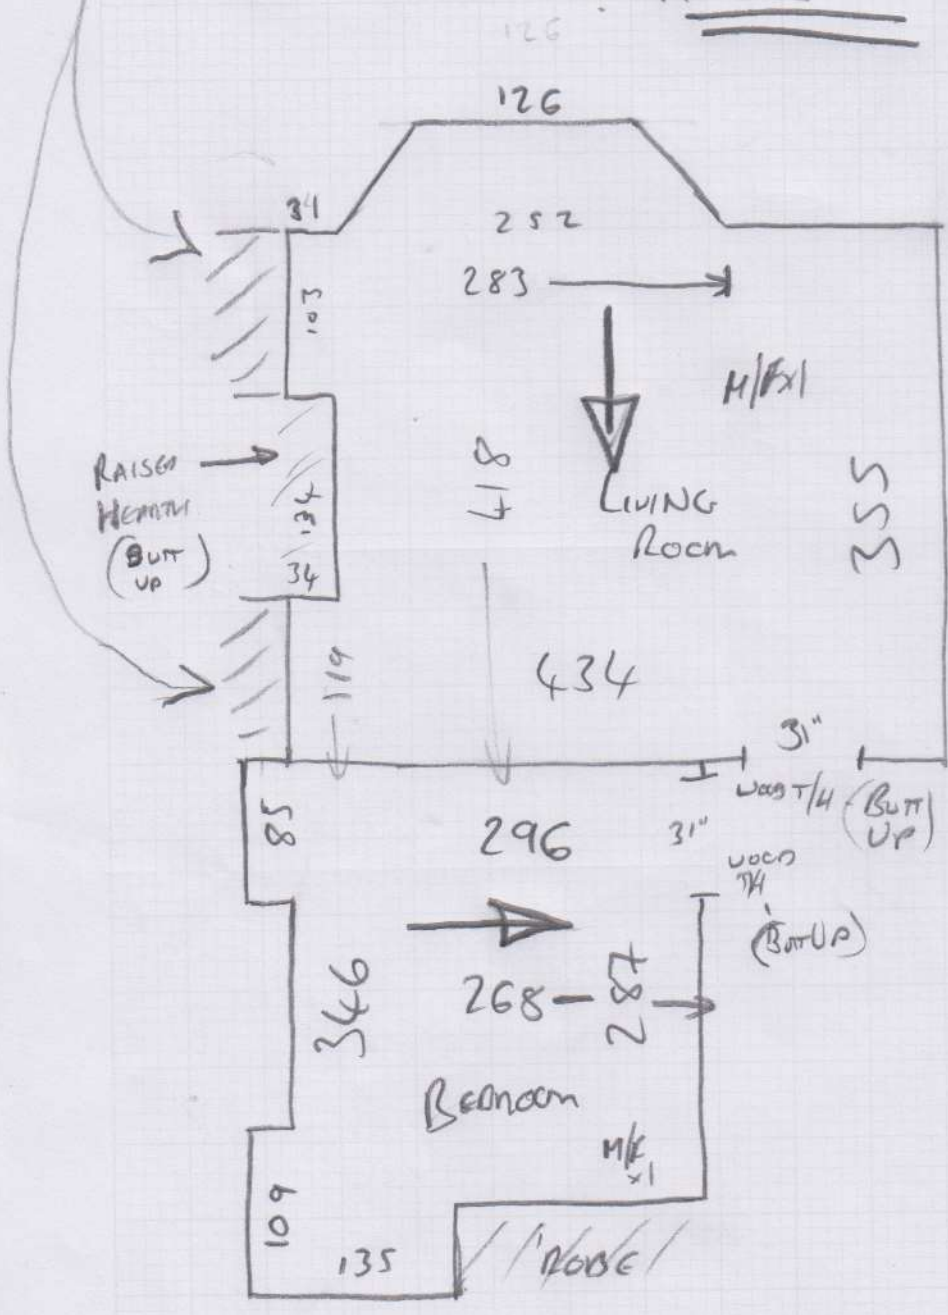 126
126
34
252
283
103
M/Fx1
RAISED
HEARTH
(BUTT
UP)
134
34
418
LIVING
ROOM
355
119
434
31"
WOOD T/H (BUTT
UP)
85
296
31"
WOOD
T/H
(BUTT UP)
346
268
287
BEDROOM
M/F
x1
109
135
ROBE